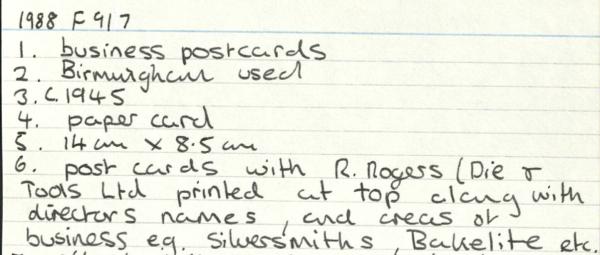 1988 F 917
1. business postcards
2. Birmingham used
3. C.1945
4. paper card
5. 14 cm x 8.5 cm
6. post cards with R. Rogers (Die &
Tools Ltd printed at top along with
directors names, and areas of
business e.g. Silversmiths, Bakelite etc.